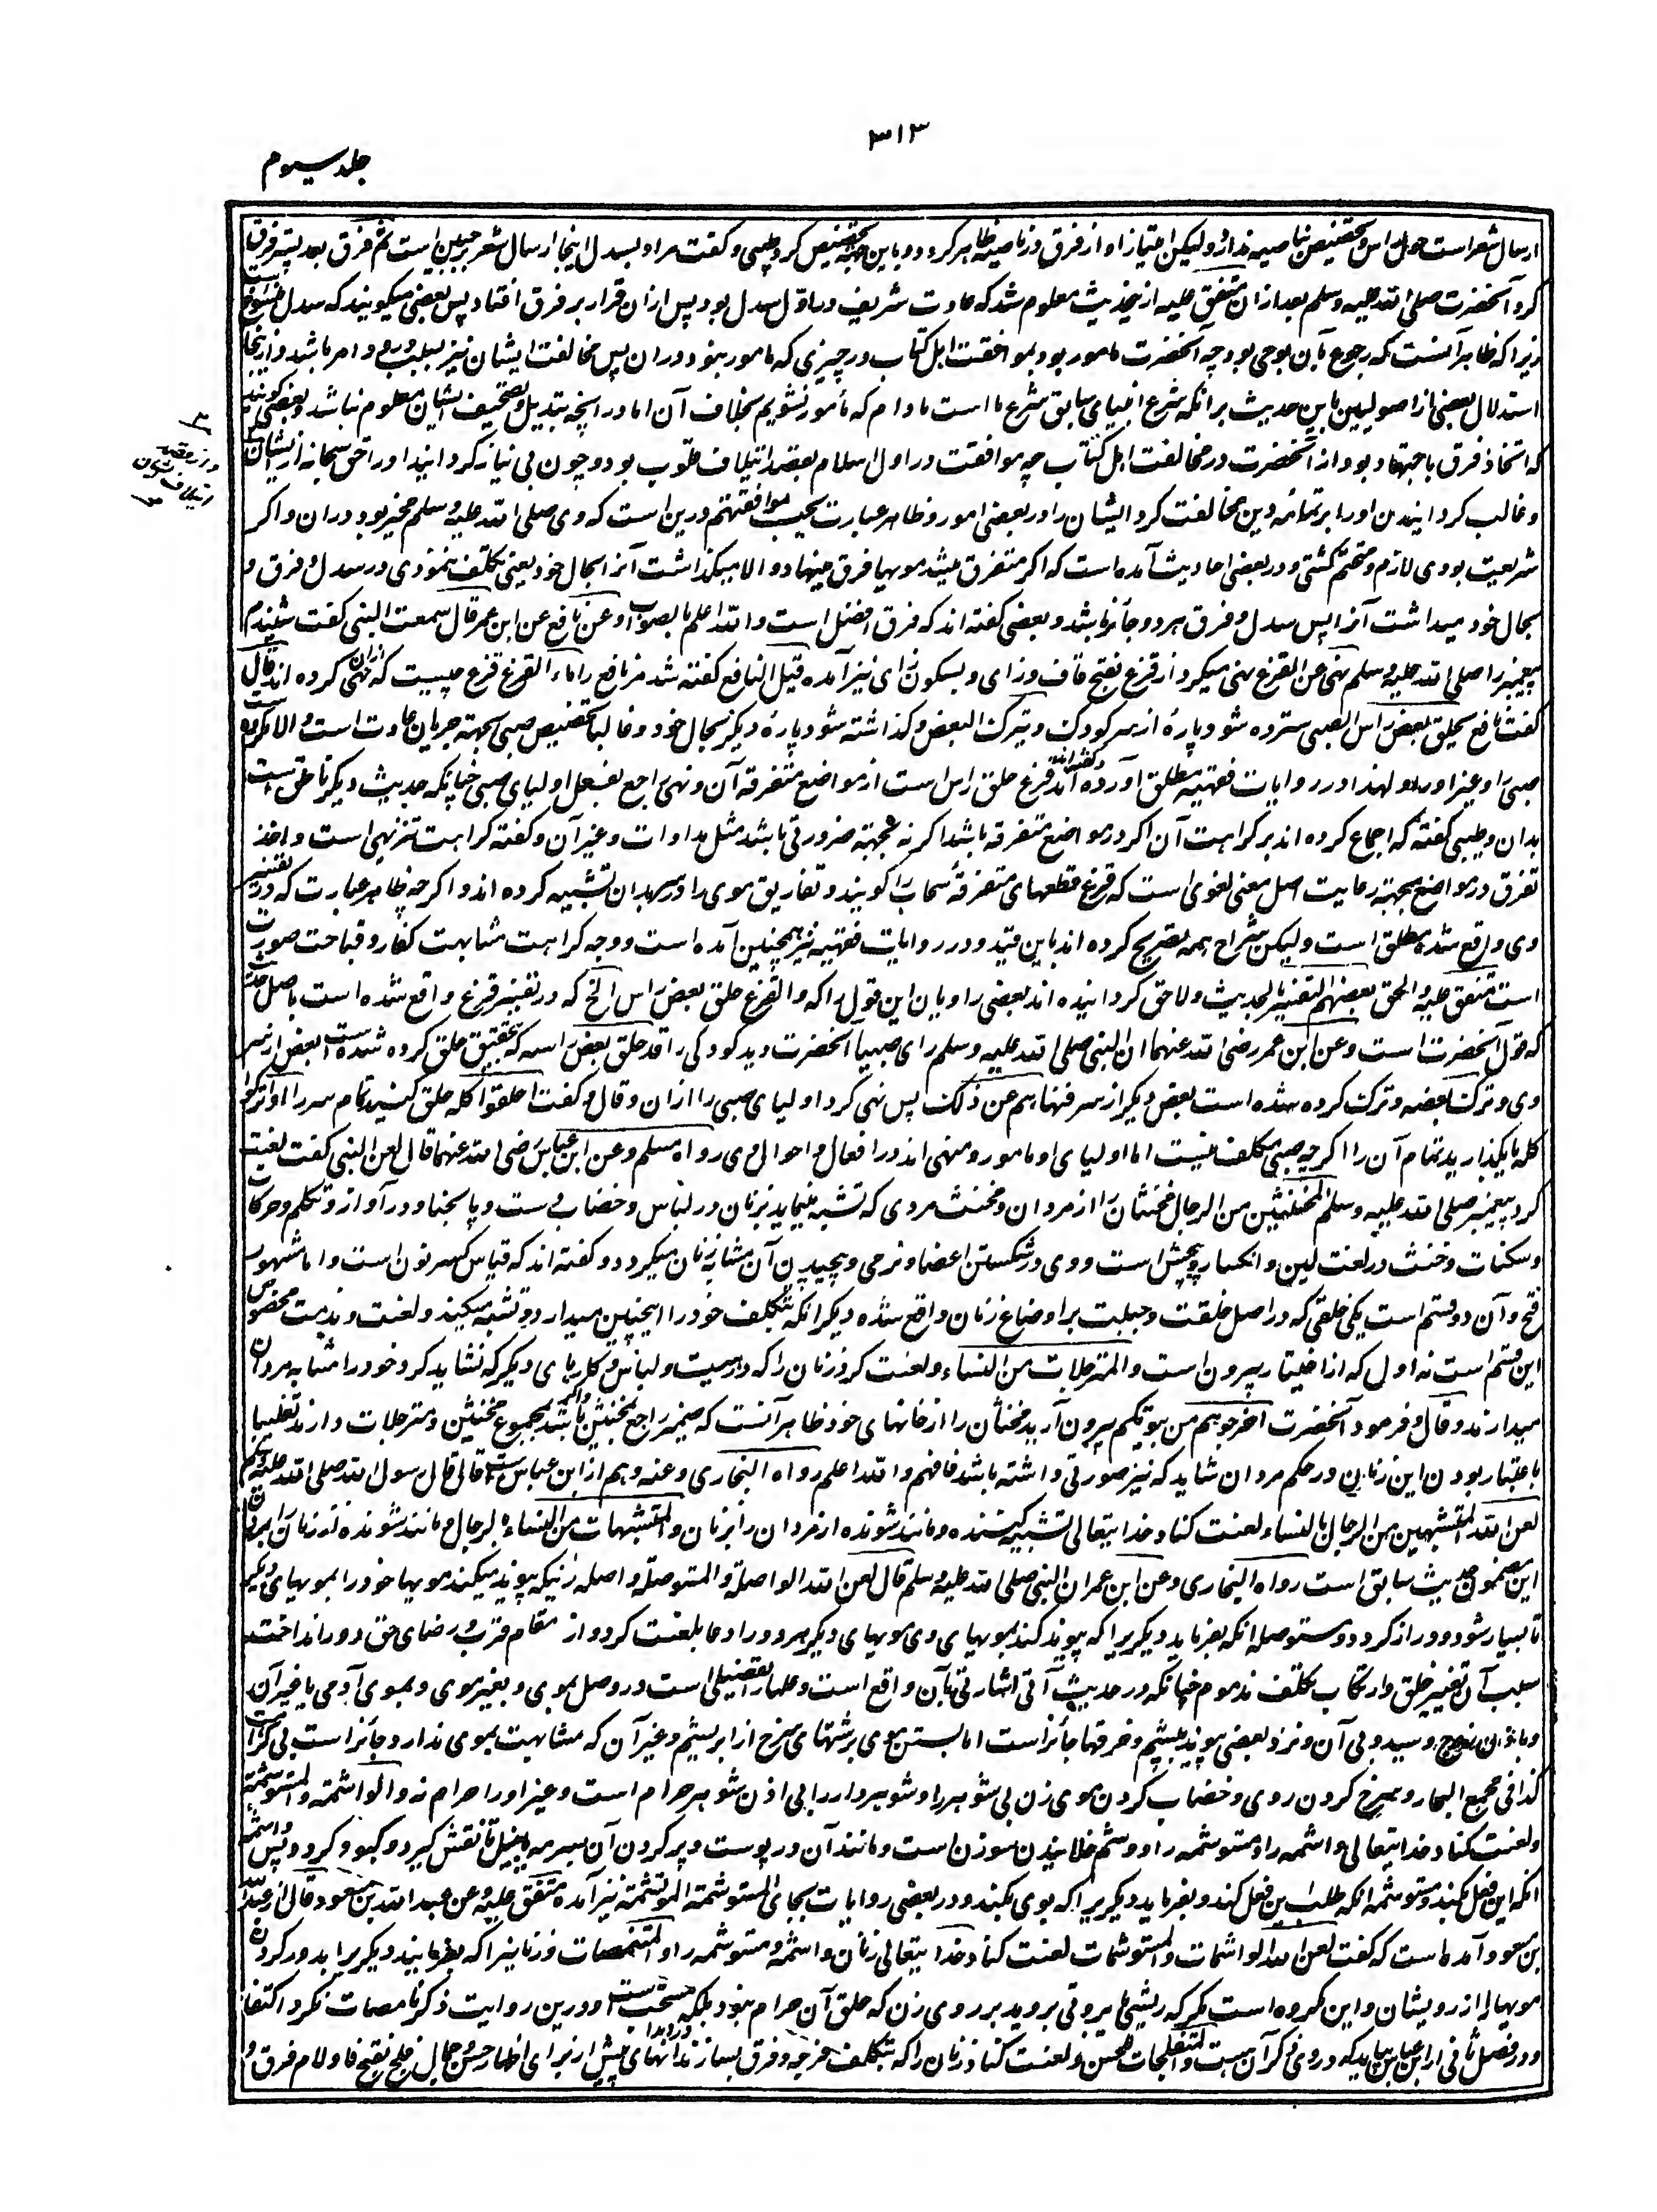 ۳۱۳
جلد سیوم
ارسال شعر است حول راس و تخصیص بناصیه ندارد و لیکن امتیاز او از فرق در ناصیه ظاهر گردد و باین جهة تخصیص کرد و طیبی گفت مراد بسدل اینجا ارسال شعر بر جبین است ثم فرق بعد پستر فرق
کرد آنحضرت صلی الله علیه وسلم بعد ازان متفق علیه ازین حدیث معلوم شد که عادت شریف در اول سدل بود پس ازان قرار بر فرق افتاد پس بعضی میگویند که سدل منسوخ است
زیرا که ظاهر آنست که رجوع بآن بوحی بود چه آنحضرت مامور بود بموافقت اهل کتاب در چیزی که مامور نبود دران پس مخالفت ایشان نیز بسبب ورود امر باشد و ازینجا
استدلال بعضی از اصولیین باین حدیث برانکه شرع انبیای سابق شرع ما است مادام که مأمور نشویم بخلاف آن اما در آنچه تبدیل و تصحیف ایشان معلوم نباشد و بعضی گویند
که اتخاذ فرق باجتهاد بود از آنحضرت در مخالفت اهل کتاب چه موافقت در اول اسلام بقصد ائتلاف قلوب بود و چون بی نیاز گردانید او را حق سبحانه از ایشان
و غالب گردانیدن او را بر تمامه دین مخالفت کرد ایشان را در بعضی امور و ظاهر عبارت یحب موافقتهم درین است که وی صلی الله علیه وسلم مخیر بود دران و اگر
شریعت بودی لازم و متحتم گشتی و در بعضی احادیث آمده است که اگر متفرق میشد مویها فرق مینهاد و الا میگذاشت آنرا بحال خود یعنی تکلف ننمودی در سدل و فرق و
بحال خود میداشت آنرا پس سدل و فرق هر دو جائز باشد و بعضی گفته اند که فرق افضل است والله اعلم بالصواب و عن نافع عن ابن عمر قال سمعت النبی گفت شنیدم
پیغمبر را صلی الله علیه وسلم نهی عن القزع نهی میکرد از قزع بفتح قاف و زای و بسکون زای نیز آمده قیل لنافع گفته شد مر نافع را ماء القزع قزع چیست که ازان نهی کرده اند قال
گفت نافع یحلق بعض راس الصبی سترده شود پارۀ از سر کودک و یترک البعض و گذاشته شود پارۀ دیگر بحال خود و غالبا تخصیص صبی بجهة جریان عادت است و الا مکروه است
صبی را و غیر او را و لهذا در روایات فقهیه مطلق آورده اند و گفته اند قزع حلق راس است از مواضع متفرقه آن و نهی راجع بفعل اولیای صبی چنانکه حدیث دیگر ناطق است
بدان و طیبی گفته که اجماع کرده اند بر کراهت آن اگر در مواضع متفرقه باشد اگر نه بجهة ضرورتی باشد مثل مداوات و غیر آن و گفته کراهت تنزیهی است و اخذ
تفرق در مواضع بجهة رعایت اصل معنی لغوی است که قزع قطعهای متفرقۀ سحاب را گویند و تفاریق موی را در سر بدان تشبیه کرده اند و اگرچه ظاهر عبارت که در تفسیر
وی واقع شده مطلق است و لیکن شراح همه تصریح کرده اند باین قید و در روایات فقهیه نیز همچنین آمده است و وجه کراهت مشابهت کفار و قباحت صورت
است متفق علیه و الحق بعضهم التفسیر بالحدیث و لاحق گردانیده اند بعضی راویان این قول را که والقزع حلق بعض راس الخ که در تفسیر قزع واقع شده است باصل حدیث
که قول آنحضرت است و عن ابن عمر رضی الله عنهما ان النبی صلی الله علیه وسلم رای صبیا آنحضرت دید کودکی را قد حلق بعض راسه که بتحقیق حلق کرده شده است بعض از سر
وی و ترک بعضه و ترک کرده شده است بعض دیگر از سر فنهاهم عن ذلک پس نهی کرد اولیای صبی را ازان و قال و گفت احلقوا کله حلق کنید تمام سر را او اترکوا
کله یا بگذارید تمام آن را اگرچه صبی مکلف نیست اما اولیای او مامور و منهی اند در افعال و احوال وی رواه مسلم و عن ابن عباس رضی الله عنهما قال لعن النبی گفت لعنت
کرد پیغمبر صلی الله علیه وسلم المخنثین من الرجال مخنثان را از مردان و مخنث مردی که تشبه نماید بزنان در لباس و خضاب دست و پا بحنا و در آواز و تکلم و حرکات
و سکنات و خنث در لغت لین و انکسار و پیچش است و وی در شکستن اعضا و نرمی و پیچیدن آن مشابه زنان میگردد و گفته اند که قیاس کسر نون است و اما مشهور
فتح و آن دو قسم است یکی خلقی که در اصل خلقت و جبلت بر اوضاع زنان واقع شده دیگر انکه بتکلف خود را اینچنین میدارد و تشبه میکند و لعنت و مذمت مخصوص
این قسم است نه اول که از اختیار بیرون است و المترجلات من النساء و لعنت کرد زنان را که در هیئت و لباس و کارهای دیگر که نشاید کرد خود را مشابه مردان
میدارند و قال و فرمود آنحضرت اخرجوهم من بیوتکم بیرون آرید مخنثان را از خانهای خود ظاهر آنست که ضمیر راجع بمخنثین باشد و اگر بمجموع مخنثین و مترجلات دارند تغلیبا
باعتبار بودن این زنان در حکم مردان شاید که نیز صورتی داشته باشد فافهم والله اعلم رواه البخاری و عنه و هم از ابن عباس است قال قال رسول الله صلی الله علیه وسلم
لعن الله المتشبهین من الرجال بالنساء لعنت کناد خدا یتعالی تشبیه کننده و مانند شونده از مردان را بزنان و المتشبهات من النساء بالرجال و مانند شونده از زنان را بمردان
این مضمون حدیث سابق است رواه البخاری و عن ابن عمر ان النبی صلی الله علیه وسلم قال لعن الله الواصلة و المستوصلة واصله زنیکه پیوند میکند مویها خود را بمویهای دیگر
تا بسیار شود و دراز گردد و مستوصله انکه بفرماید دیگریرا که پیوند کند بمویهای وی مویهای دیگر هر دو را دعا بلعنت کرد و از مقام قرب و رضای حق دور انداخت
سبب آن تغییر خلق و ارتکاب تکلف مذموم چنانکه در حدیث آتی اشارتی بآن واقع است و علما را تفصیلی است در وصل بموی و بغیر موی و بموی آدمی یا غیر آن
و باذن زوج و سید و بی آن و نزد بعضی پیوند بپشم و خرقها جائز است اما بستن موی برشتهای سرخ از ابریشم و غیر آن که مشابهت بموی ندارد جائز است بی کراهت
کذا فی مجمع البحار و سرخ کردن روی و خضاب کردن موی زن بی شوهر را و شوهردار را بی اذن شوهر حرام است و غیر او را حرام نه و الواشمة و المستوشمة
و لعنت کناد خدا یتعالی واشمه را و مستوشمه را و وشم خلانیدن سوزن است و مانند آن در پوست و پر کردن آن بسرمه یا بنیل تا نقش گیرد و کبود گردد پس واشمه
انکه این فعل بکند و مستوشمه انکه طلب این فعل کند و بفرماید دیگریرا که بوی بکند و در بعضی روایات بجای المستوشمة الموتشمة نیز آمده متفق علیه و عن عبد الله بن مسعود قال از عبد الله
بن مسعود آمده است که گفت لعن الله الواشمات و المستوشمات لعنت کناد خدا یتعالی زنان واشمه و مستوشمه را و المتنمصات و زنانیرا که بفرمایند دیگریرا بدور کردن
مویها را از رویشان و این مکروه است مگر که ریشی یا بروتی بروید بر روی زن که حلق آن حرام نبود بلکه مستحب است و درین روایت ذکر نامصات نکرد اکتفا
و در فصل ثانی از ابن عباس بیاید که در وی ذکر آن هست و المتفلجات للحسن و لعنت کناد زنان را که بتکلف فرجه و فرق بسازند در دندانهای پیش از برای اظهار حسن و جمال فلج بفتح فا و لام فرق و